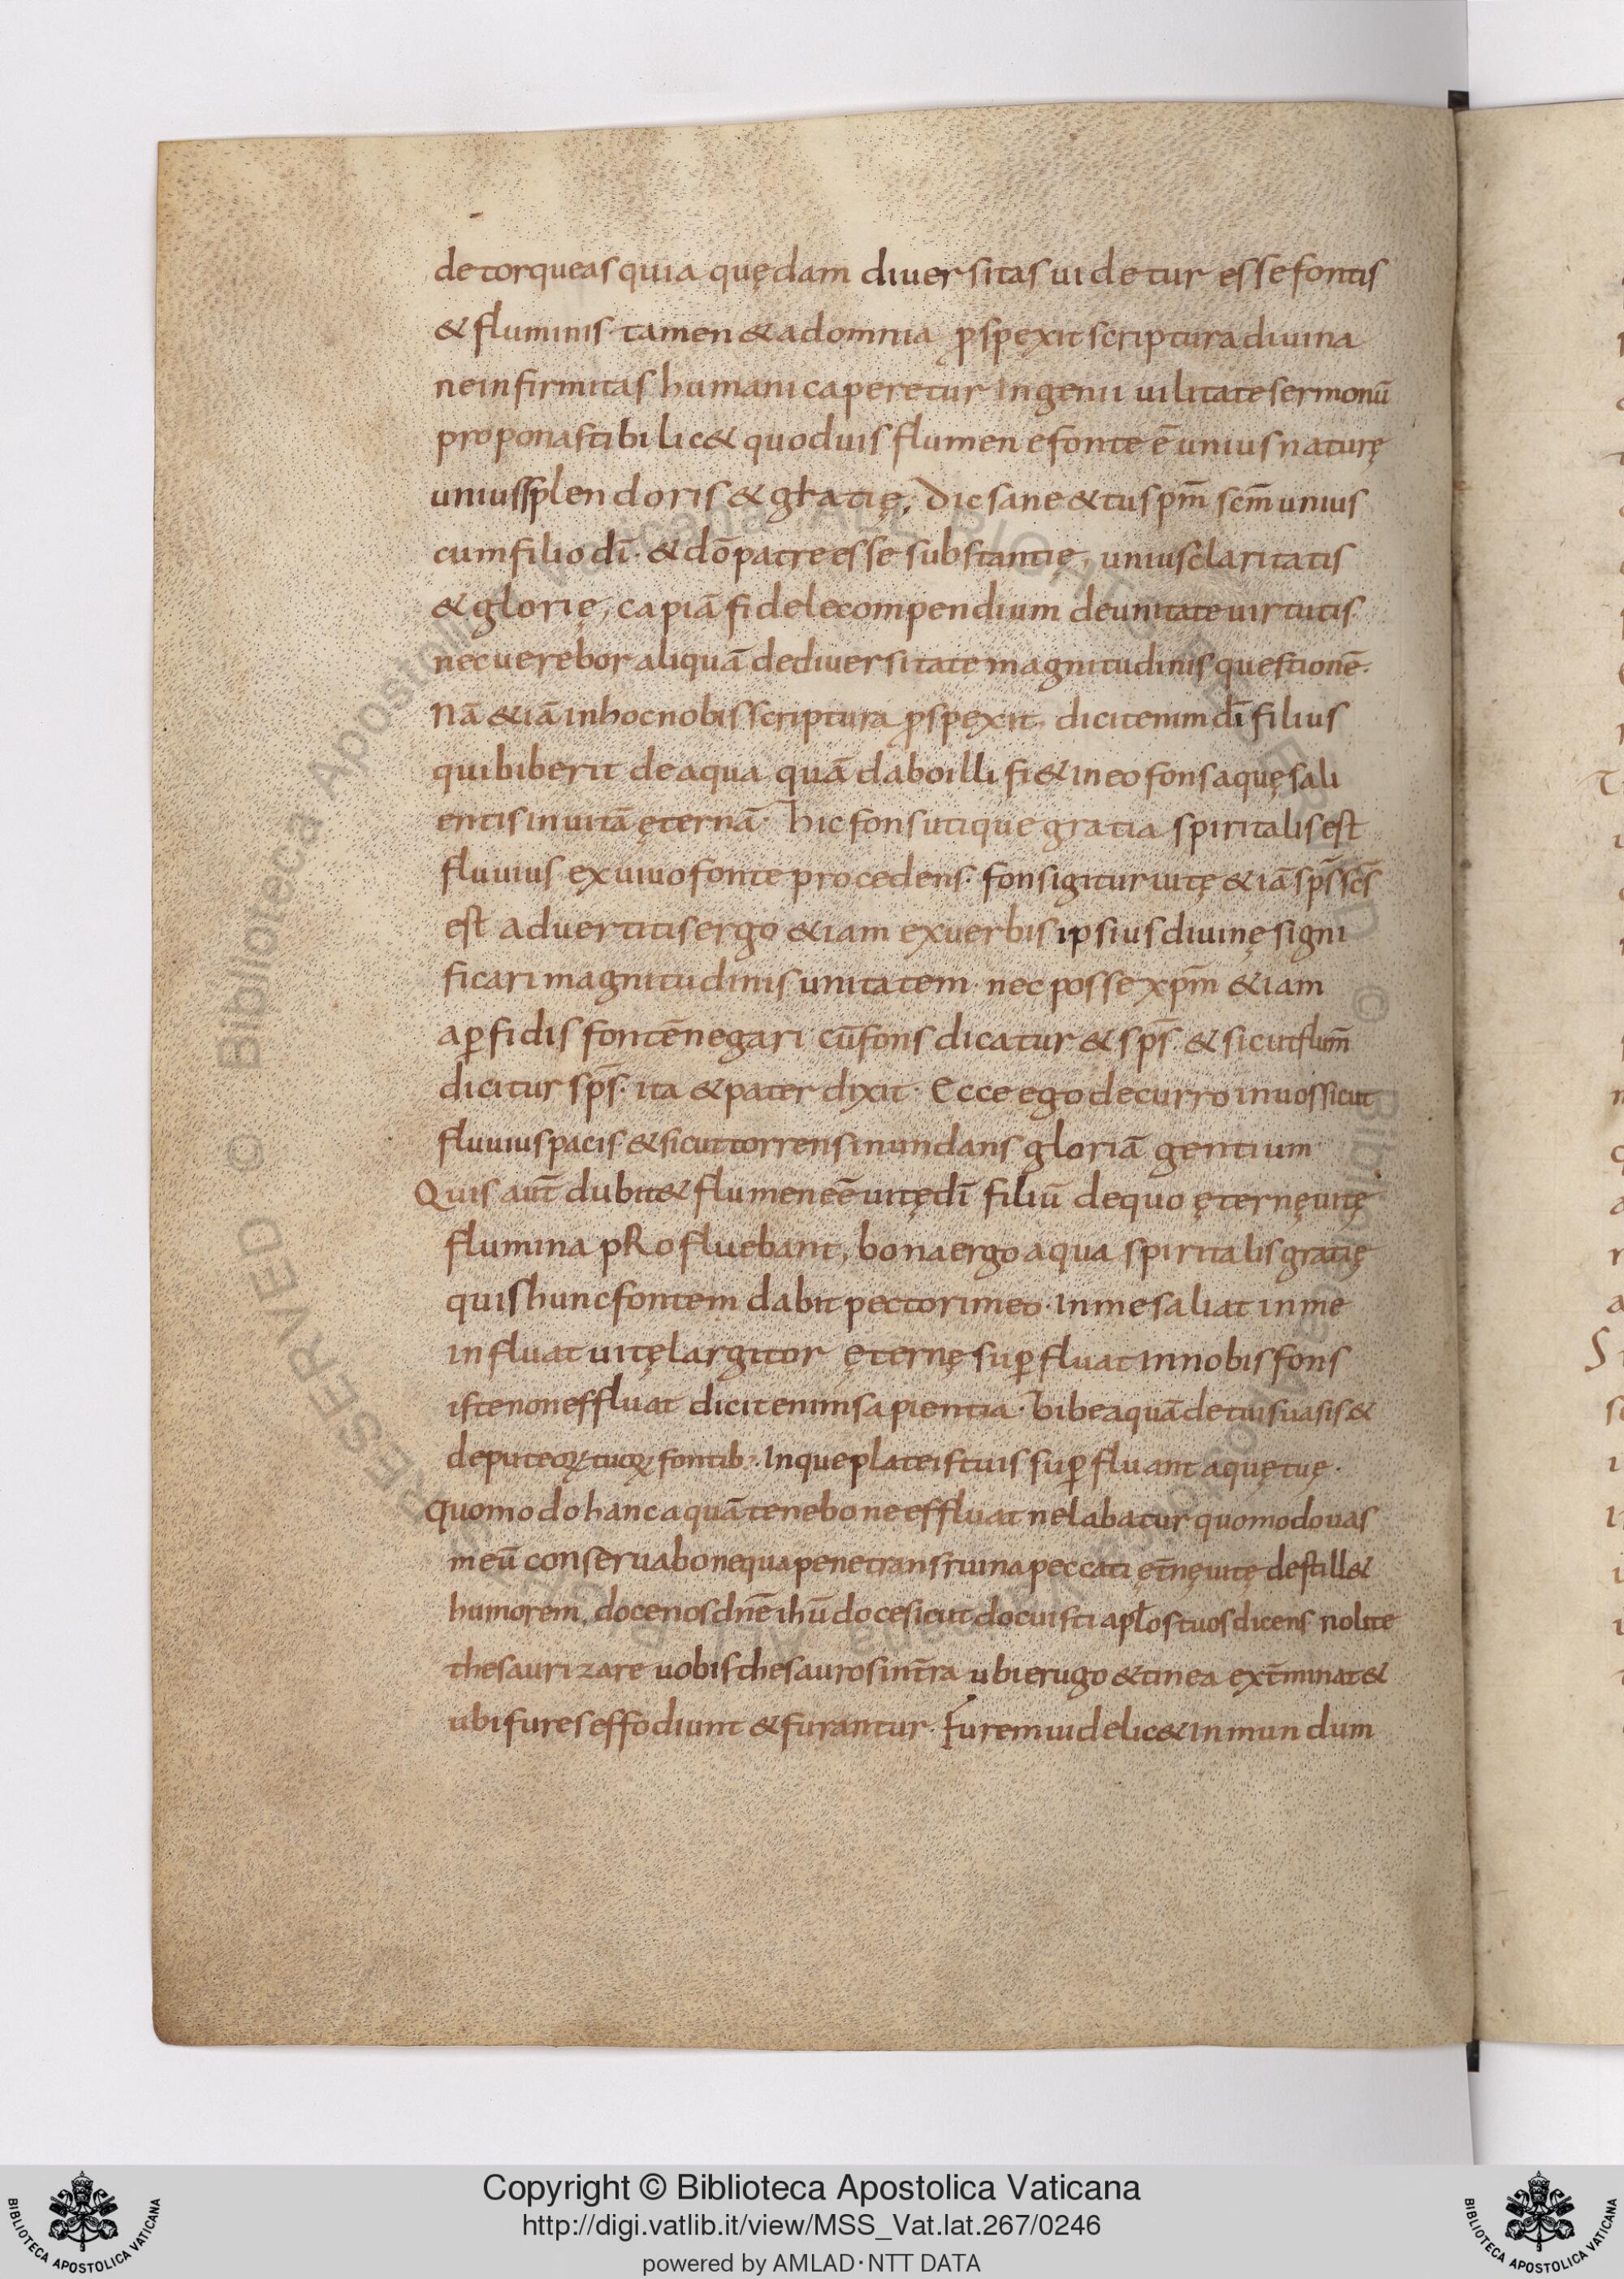 detorqueas quia quędam diuersitas uidetur esse fontis
& fluminis· tamen & ad omnia ꝓspexit scriptura diuina
ne infirmitas humani caperetur ingenii uilitate sermonū
proponas tibi lic& quoduis flumen e fonte ē unius naturę
unius splendoris & gratię; Dic sane & tu spm̄ scm̄ unius
cum filio dī· & dō patre esse substantię, unius claritatis
& glorię, capiā fidele compendium de unitate uirtutis·
nec uerebor aliquā de diuersitate magnitudinis questionē·
Nā &iā in hoc nobis scriptura ꝓspexit, dicit enim dī filius
qui biberit de aqua quā dabo illi fi& in eo fons aquę sali
entis in uitā ęternā· hic fons utique gratia spiritalis est
fluuius ex uiuo fonte procedens· fons igitur uitę &iā sp̄s sc̄s
est aduertitis ergo &iam ex uerbis ipsius diuinę signi
ficari magnitudinis unitatem· nec posse xpm̄ &iam
a ꝑfidis fontē negari cū fons dicatur & sp̄s· & sicut flum̄
dicitur sp̄s· ita & pater dixit· Ecce ego decurro in uos sicut
fluuius pacis & sicut torrens inundans gloriā gentium·
Quis aut̄ dubit& flumen eē uitę dī filiū de quo ęternę uitę
flumina pRofluebant, bona ergo aqua spiritalis gratię
quis hunc fontem dabit pectori meo· in me saliat in me
influat uitę largitor ęternę suꝑfluat in nobis fons
iste non effluat dicit enim sapientia· bibe aquā de tuis uasis &
de puteoꝝ tuoꝝ fontib;· Inque plateis tuis suꝑfluant aquę tuę·
Quomodo hanc aquā tenebo ne effluat ne labatur quomodo uas
meū conseruabo nequa penetrans ruina peccati ęt̄nę uitę destill&
humorem, doce nos dn̄e ihū doce sicut docuisti apłos tuos dicens nolite
thesaurizare uobis thesauros in t̄ra ubi erugo & tinea ext̄minat &
ubi fures effodiunt & furantur· Furem uidelic& inmundum
Copyright © Biblioteca Apostolica Vaticana
http://digi.vatlib.it/view/MSS_Vat.lat.267/0246
powered by AMLAD·NTT DATA
BIBLIOTECA APOSTOLICA VATICANA
BIBLIOTECA APOSTOLICA VATICANA